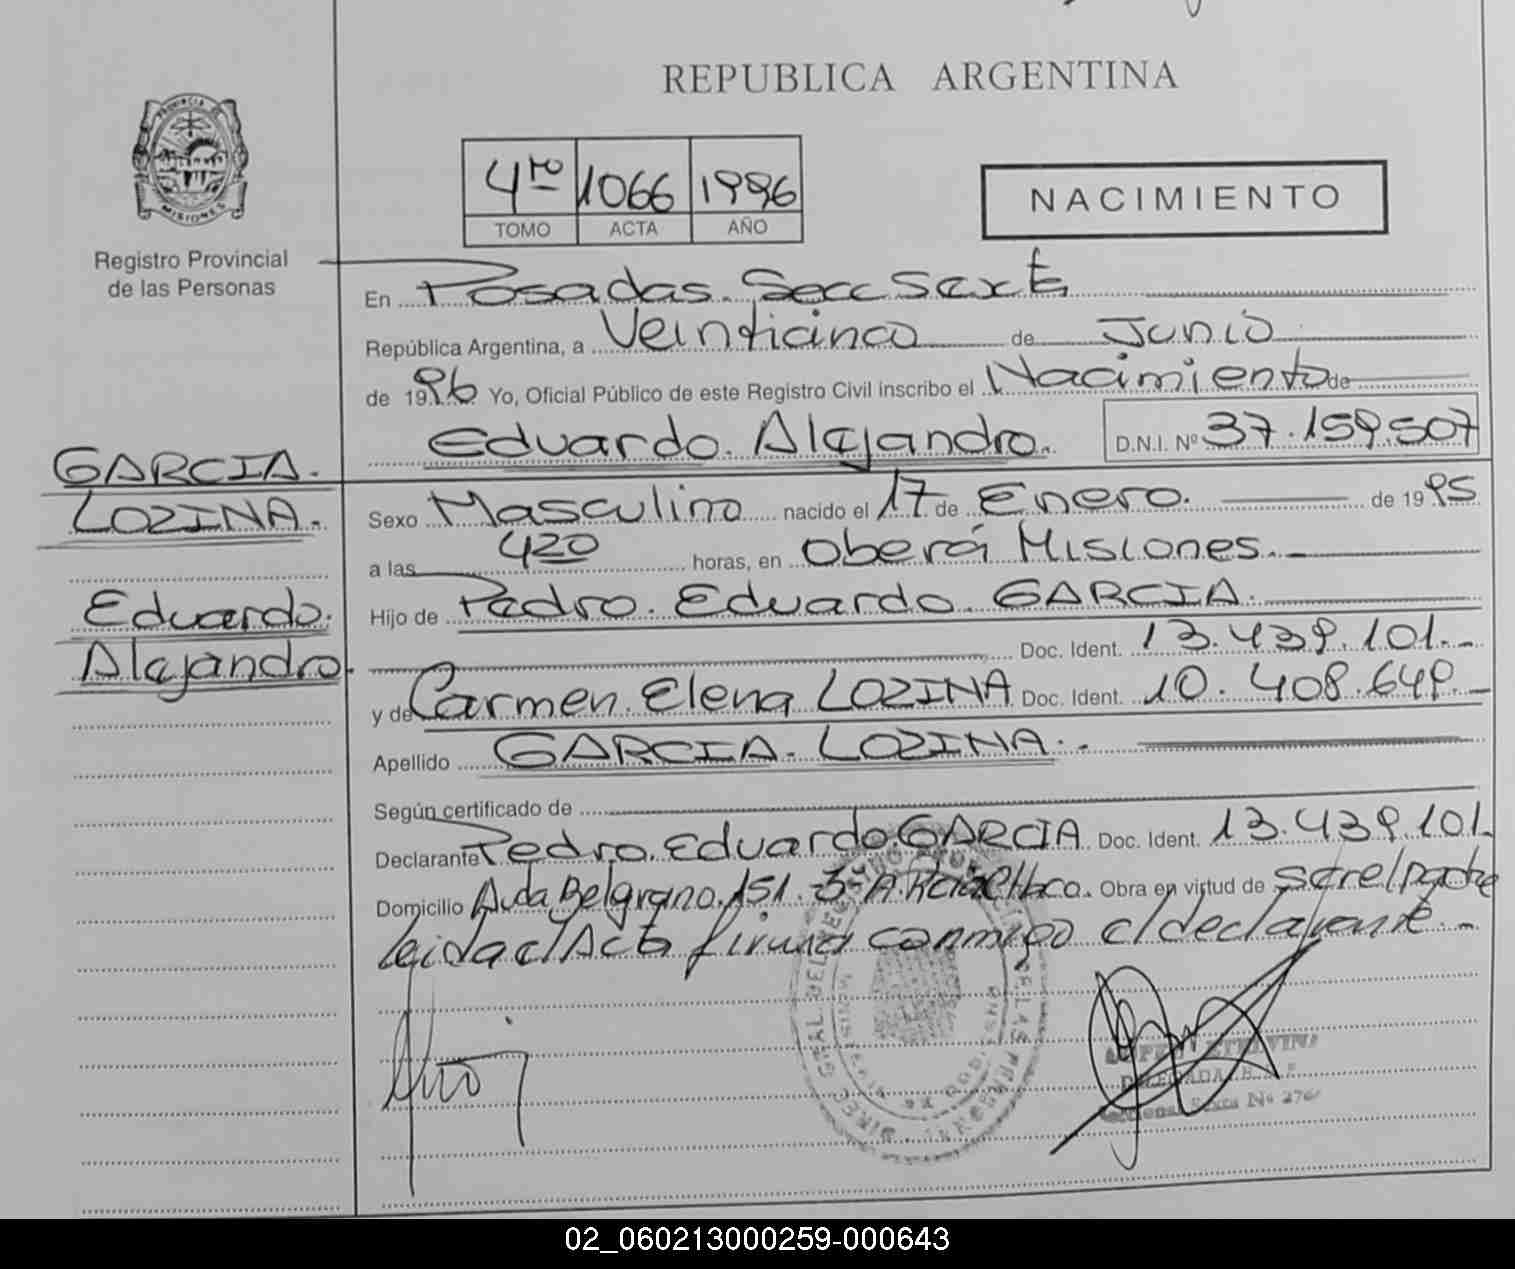 REPUBLICA ARGENTINA
PROVINCIA DE
MISIONES
Registro Provincial
de las Personas
4to 1066 1996
TOMO ACTA AÑO
NACIMIENTO
En Posadas. Secc Sexta
República Argentina, a Veinticinco de Junio
de 1996 Yo, Oficial Público de este Registro Civil inscribo el Nacimiento de
Eduardo. Alejandro. D.N.I. Nº 37.159.507
GARCIA.
LOZINA.
Eduardo.
Alejandro.
Sexo Masculino nacido el 17 de Enero. de 1995
a las 420 horas, en Oberá Misiones.
Hijo de Pedro. Eduardo. GARCIA.
Doc. Ident. 13.439.101.
y de Carmen. Elena LOZINA Doc. Ident. 10.408.649.
Apellido GARCIA. LOZINA.
Según certificado de
Declarante Pedro. Eduardo. GARCIA Doc. Ident. 13.439.101.
Domicilio Avda Belgrano. 151. Obra en virtud de
leida el Acta firma conmigo el declarante.
DELEGADA
Sexta Nº 276
02_060213000259-000643